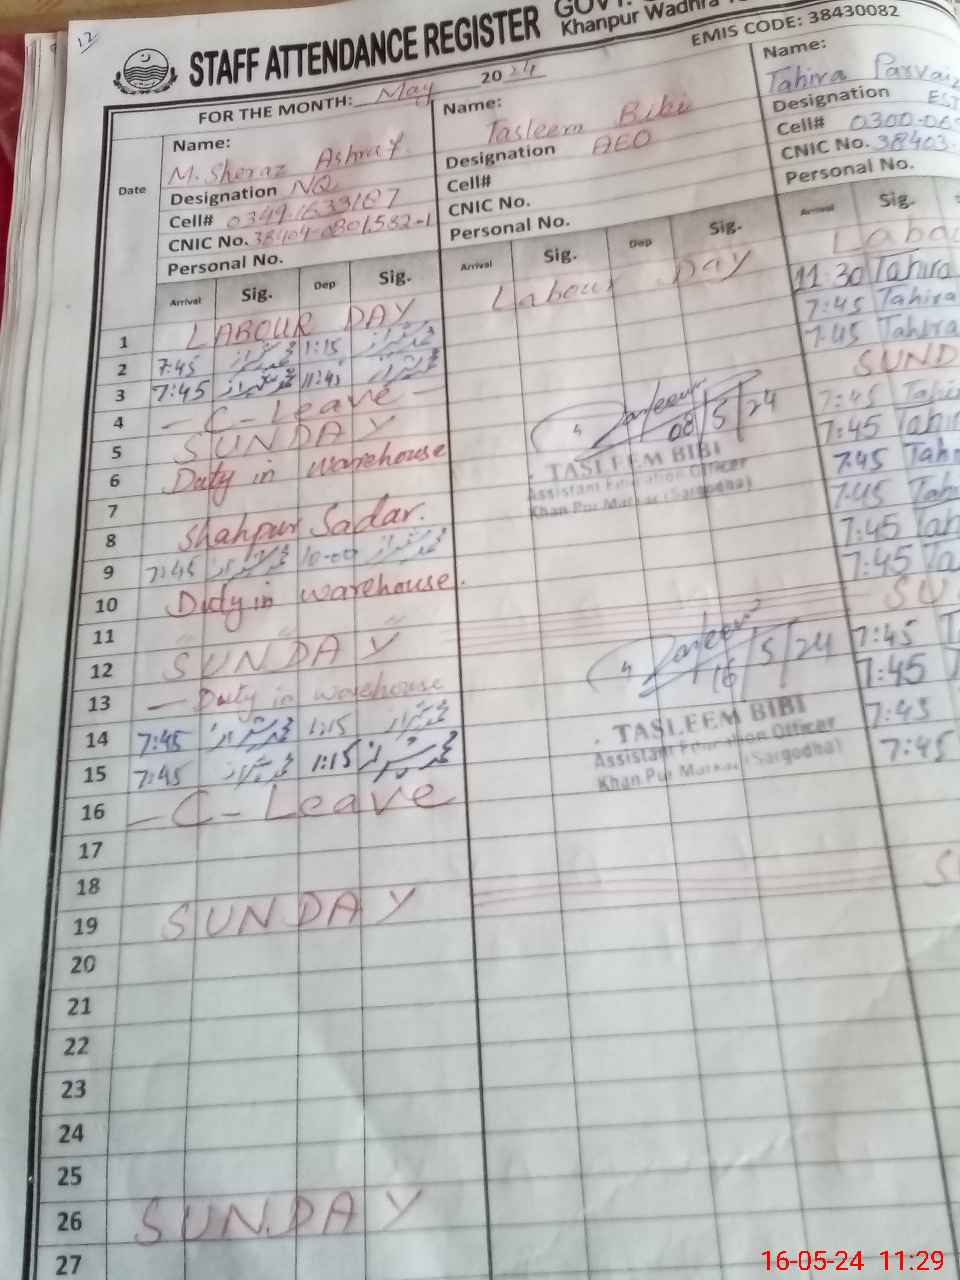 12
STAFF ATTENDANCE REGISTER GOVT.
Khanpur Wadhra
EMIS CODE: 38430082
FOR THE MONTH: May 2024
Date
Name:
M. Sheraz Ashraf
Designation NQ
Cell# 03491633187
CNIC No. 38404-0801582-1
Personal No.
Arrival Sig. Dep Sig.
Name:
Tasleem Bibi
Designation AEO
Cell#
CNIC No.
Personal No.
Arrival Sig. Dep Sig.
Name:
Tahira Parvai
Designation EST
Cell# 0300-
CNIC No. 38403-
Personal No.
Arrival Sig.
1 LABOUR DAY Labour Day Labo
2 7:45 محمد شیراز 1:15 محمد شیراز 11:30 Tahira
3 7:45 محمد شیراز 11:45 محمد شیراز 7:45 Tahira
4 - C - Leave - 7:45 Tahira
5 SUNDAY SUND
6 Duty in warehouse 7:45 Tahi
7 7:45 Tahi
8 Shahpur Sadar. 7:45 Tah
9 7:45 محمد شیراز 10-00 محمد شیراز 7:45 Tah
10 Duty in warehouse. 7:45 Tah
11 " " " 7:45 Ta
12 SUNDAY SU
13 - Duty in warehouse 7:45 T
14 7:45 محمد شیراز 1:15 محمد شیراز 7:45
15 7:45 محمد شیراز 1:15 محمد شیراز 7:45
16 - C - Leave 7:45
17
18
19 SUNDAY S
20
21
22
23
24
25
26 SUNDAY
27
Tasleem 08/5/24
TASLEEM BIBI
Assistant Education Officer
Khan Pur Markaz (Sargodha)
Tasleem 16/5/24
TASLEEM BIBI
Assistant Education Officer
Khan Pur Markaz (Sargodha)
16-05-24 11:29